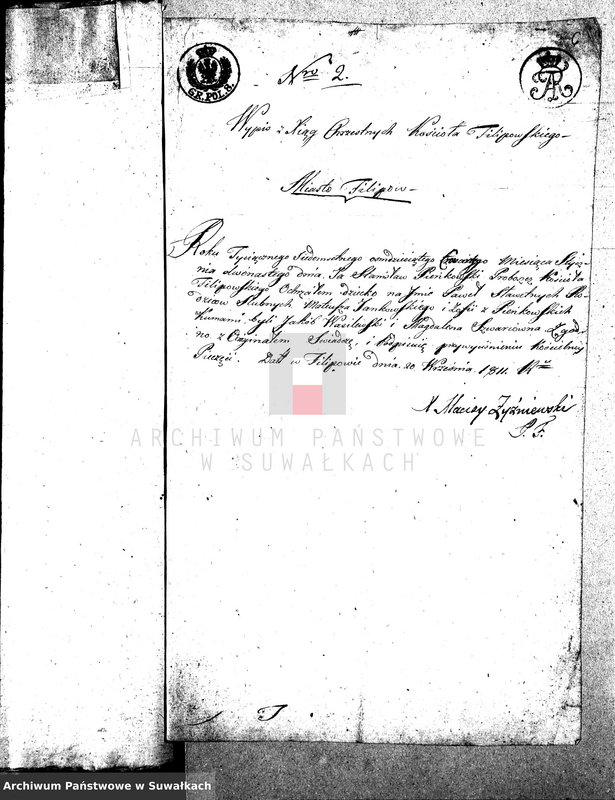 GR.POL.8.
Nro 2.
Wypis z Xiąg Chrzestnych Kościoła Filipowskiego
Miasto Filipow
Roku Tysiącznego Siedemsetnego osmdziesiątego Czwartego Miesiąca Stycz
nia dwónastego dnia. Ja Stanisław Pieńkowski Proboszcz Kościoła
Filipowskiego Ochrzciłem dziecko na Jmie Paweł Sławetnych Ro
dziców Slubnych Mateusza Jankowskiego i Zofii z Pieńkowskich
Kumami byli Jakób Wasilewski i Magdalena Szwarcówna Zgod
no z Oryginałem Swiadczę, i Kościelney
Pieczęci. Datt w Filipowie dnia 20 Września 1811. Ru
X Maciey Zyźniewski
P. F.
ARCHIWUM PAŃSTWOWE
W SUWAŁKACH
Archiwum Państwowe w Suwałkach